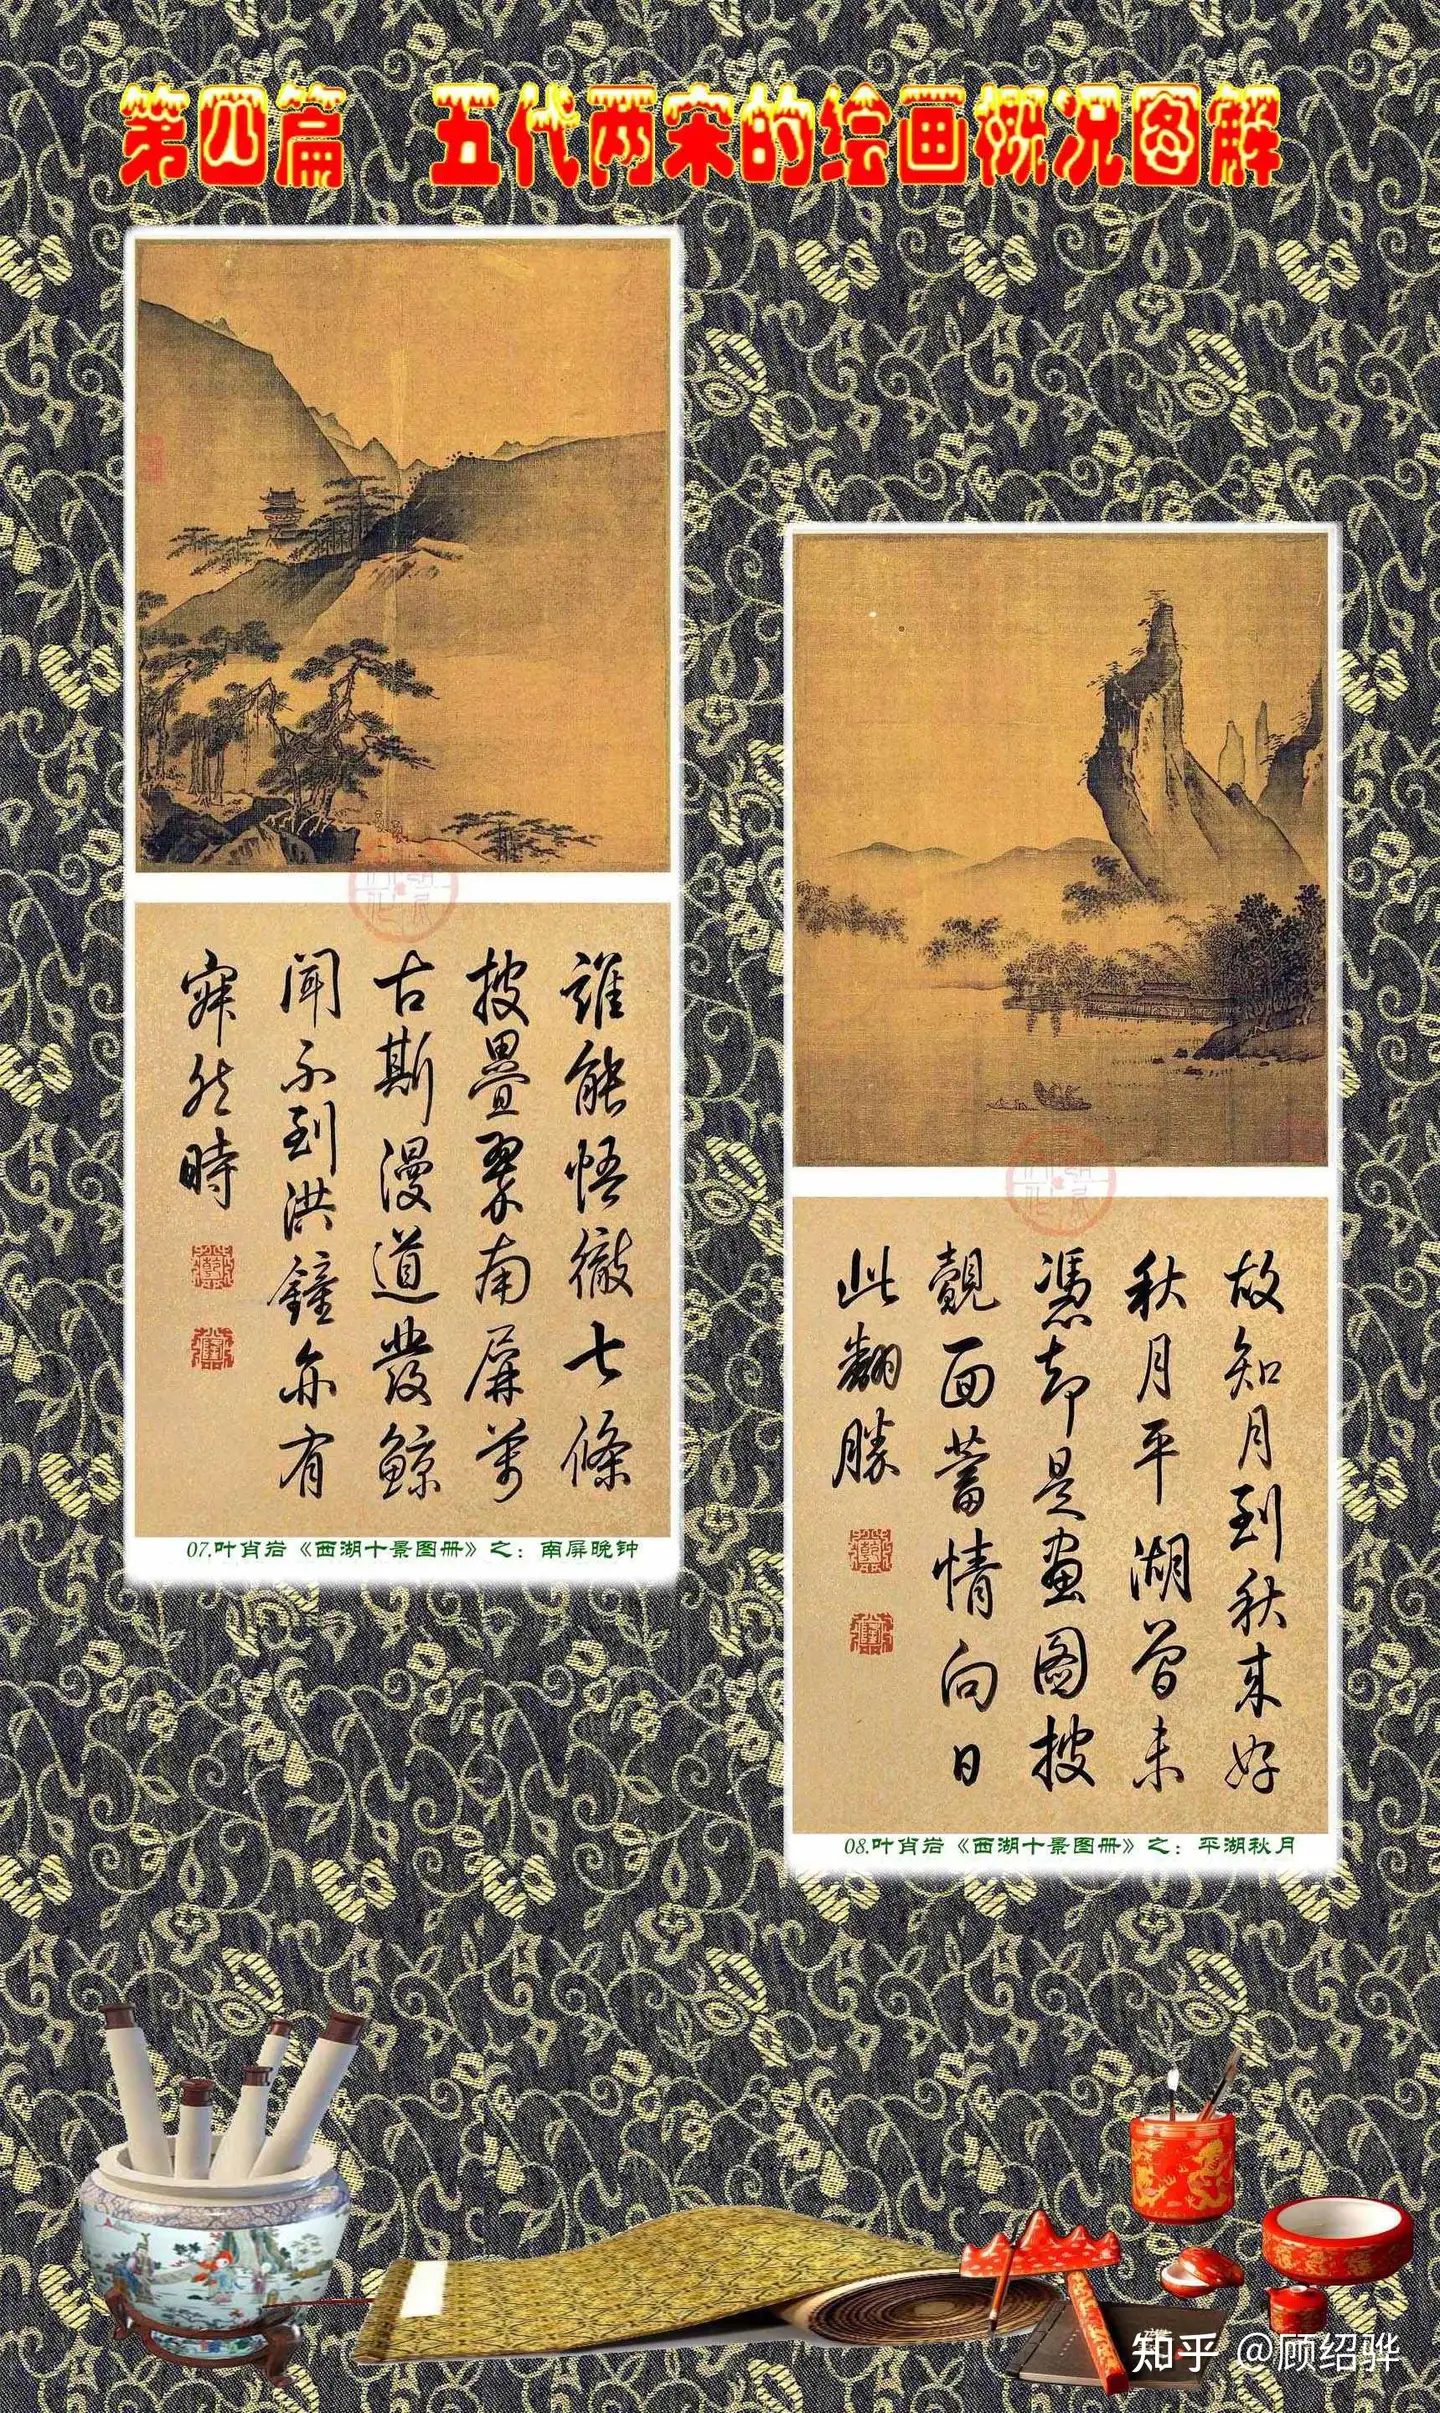 第四篇 五代两宋的绘画概况图解
誰能悟徹七條
披疊翠南屏萬
古斯漫道發鯨
聞不到洪鐘亦有
寂然時
07.叶肖岩《西湖十景图册》之：南屏晚钟
故知月到秋来好
秋月平湖曾未
憑却是畫圖披
覿面蓄情向日
此翻勝
08.叶肖岩《西湖十景图册》之：平湖秋月
知乎 @顾绍骅